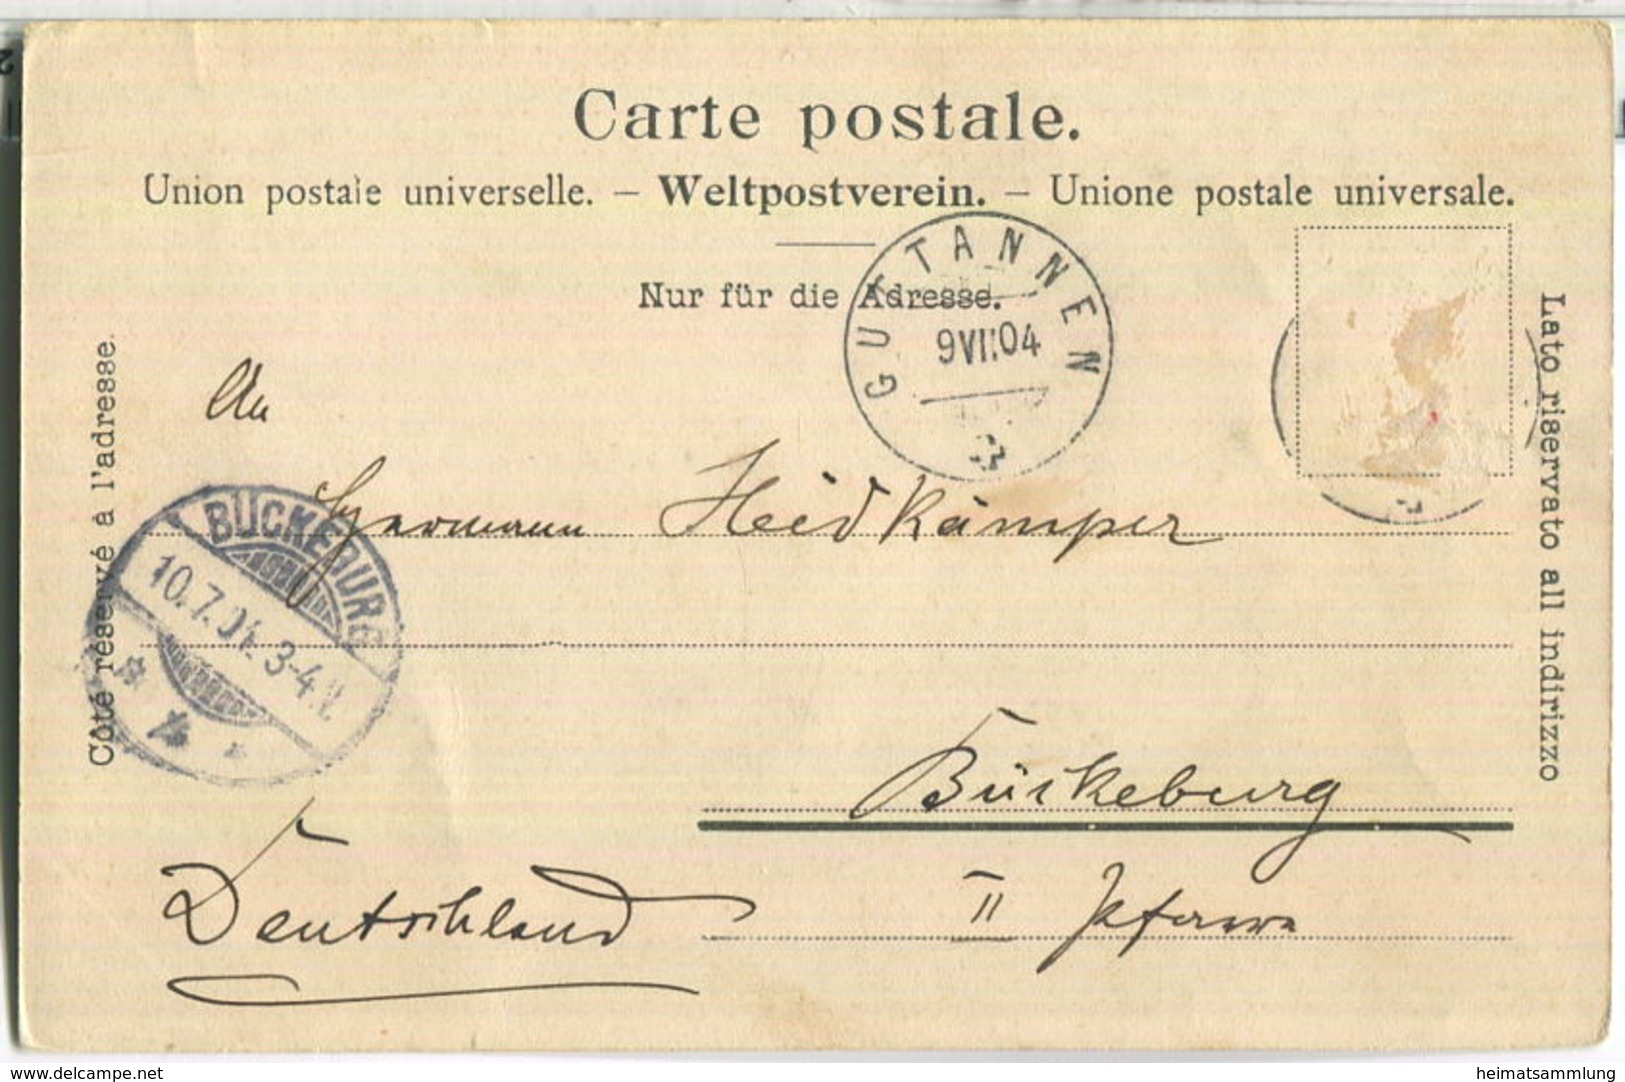 Carte postale.
Union postale universelle. — Weltpostverein. — Unione postale universale.
Nur für die Adresse.
GUTTANNEN
9VII04
Côté réservé à l'adresse.
Lato riservato all indirizzo
An
Hermann Heidkämper
BÜCKEBURG
10.7.04. 3-4 N.
Bückeburg
Deutschland
II
delcampe.net
heimatsammlung